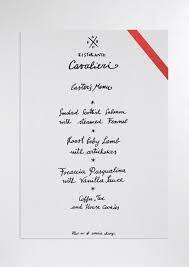 RISTORANTE
Cavalieri
Easter's Menu
*
Smoked Scottish Salmon
with steamed Fennel
*
Roast Baby Lamb
with artichokes
*
Focaccia Pasqualina
with Vanilla Sauce
*
Coffee, Tea
and House Cookies